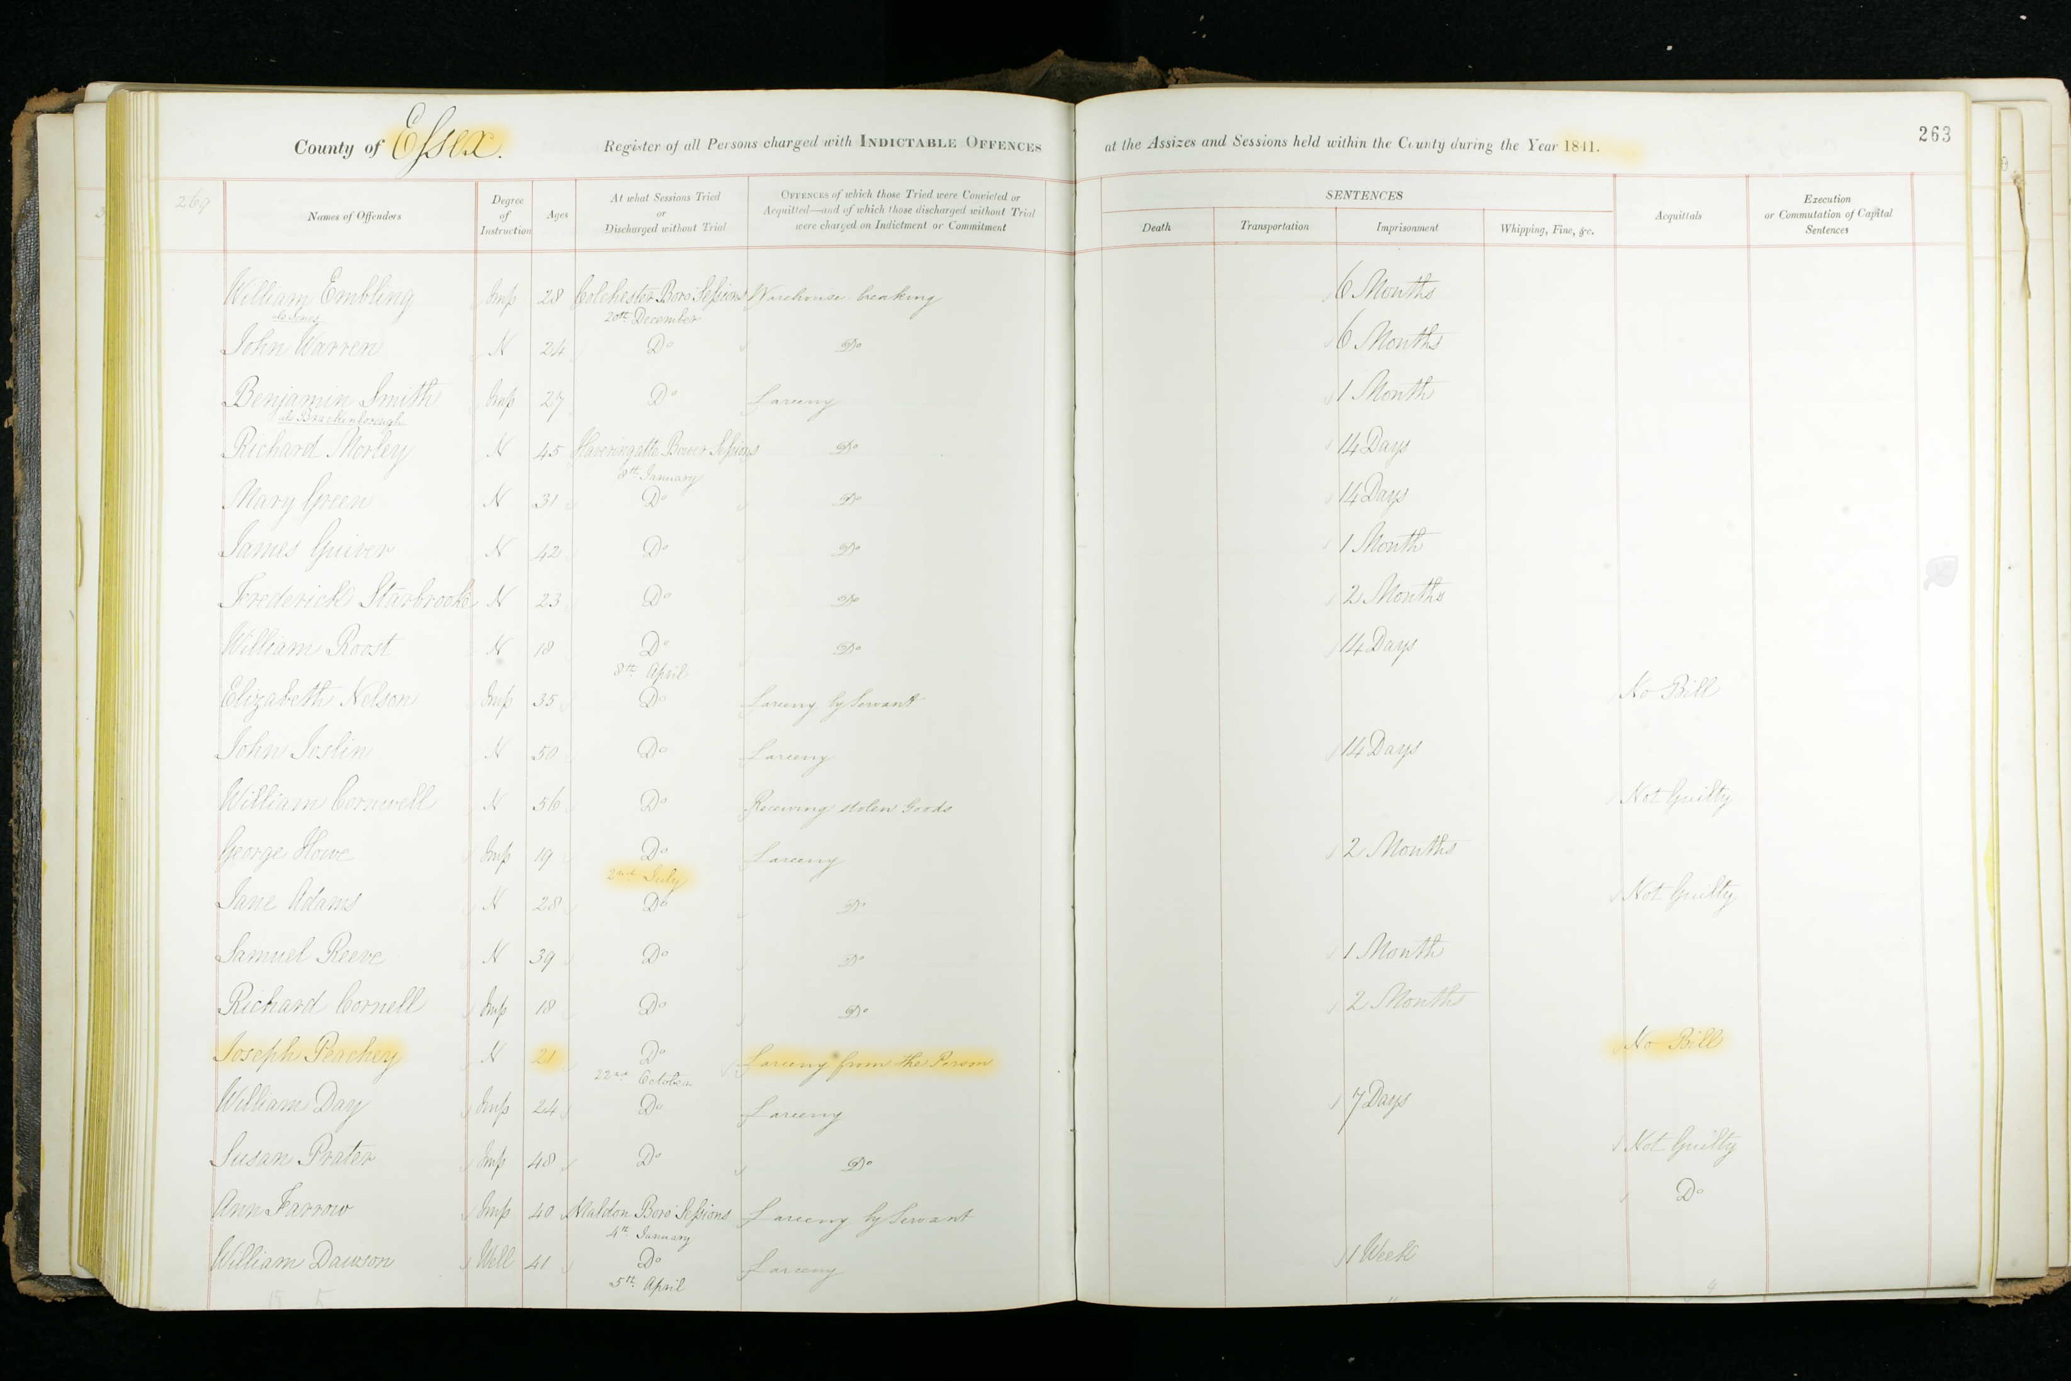 County of Essex. Register of all Persons charged with INDICTABLE OFFENCES at the Assizes and Sessions held within the County during the Year 1841. 263
269
Names of Offenders
Degree of Instruction
Ages
At what Sessions Tried or Discharged without Trial
OFFENCES of which those Tried were Convicted or Acquitted—and of which those discharged without Trial were charged on Indictment or Commitment
SENTENCES
Death Transportation Imprisonment Whipping, Fine, &c.
Acquittals
Execution or Commutation of Capital Sentences
William Embling Imp 28 Colchester Boro' Sessions Warehouse breaking 6 Months
als Jones 20th December
John Warren N 24 Do Do 6 Months
Benjamin Smith Imp 27 Do Larceny 1 Month
als Brackenborough
Richard Morley N 45 Havering atte Bower Sessions Do 14 Days
8th January
Mary Green N 31 Do Do 14 Days
James Guiver N 42 Do Do 1 Month
Frederick Starbrook N 23 Do Do 2 Months
William Roost N 18 Do Do 14 Days
8th April
Elizabeth Nelson Imp 35 Do Larceny by Servant No Bill
John Joslin N 50 Do Larceny 14 Days
William Cornwell N 56 Do Receiving stolen Goods Not Guilty
George Howe Imp 19 Do Larceny 2 Months
2nd July
Jane Adams N 28 Do Do Not Guilty
Samuel Reeve N 39 Do Do 1 Month
Richard Cornell Imp 18 Do Do 2 Months
Joseph Peachey N 21 Do Larceny from the Person No Bill
22nd October
William Day Imp 24 Do Larceny 7 Days
Susan Prater Imp 48 Do Do Not Guilty
Ann Farrow Imp 40 Maldon Boro' Sessions Larceny by Servant Do
4th January
William Dawson Well 41 Do Larceny 1 Week
5th April
15 5 4